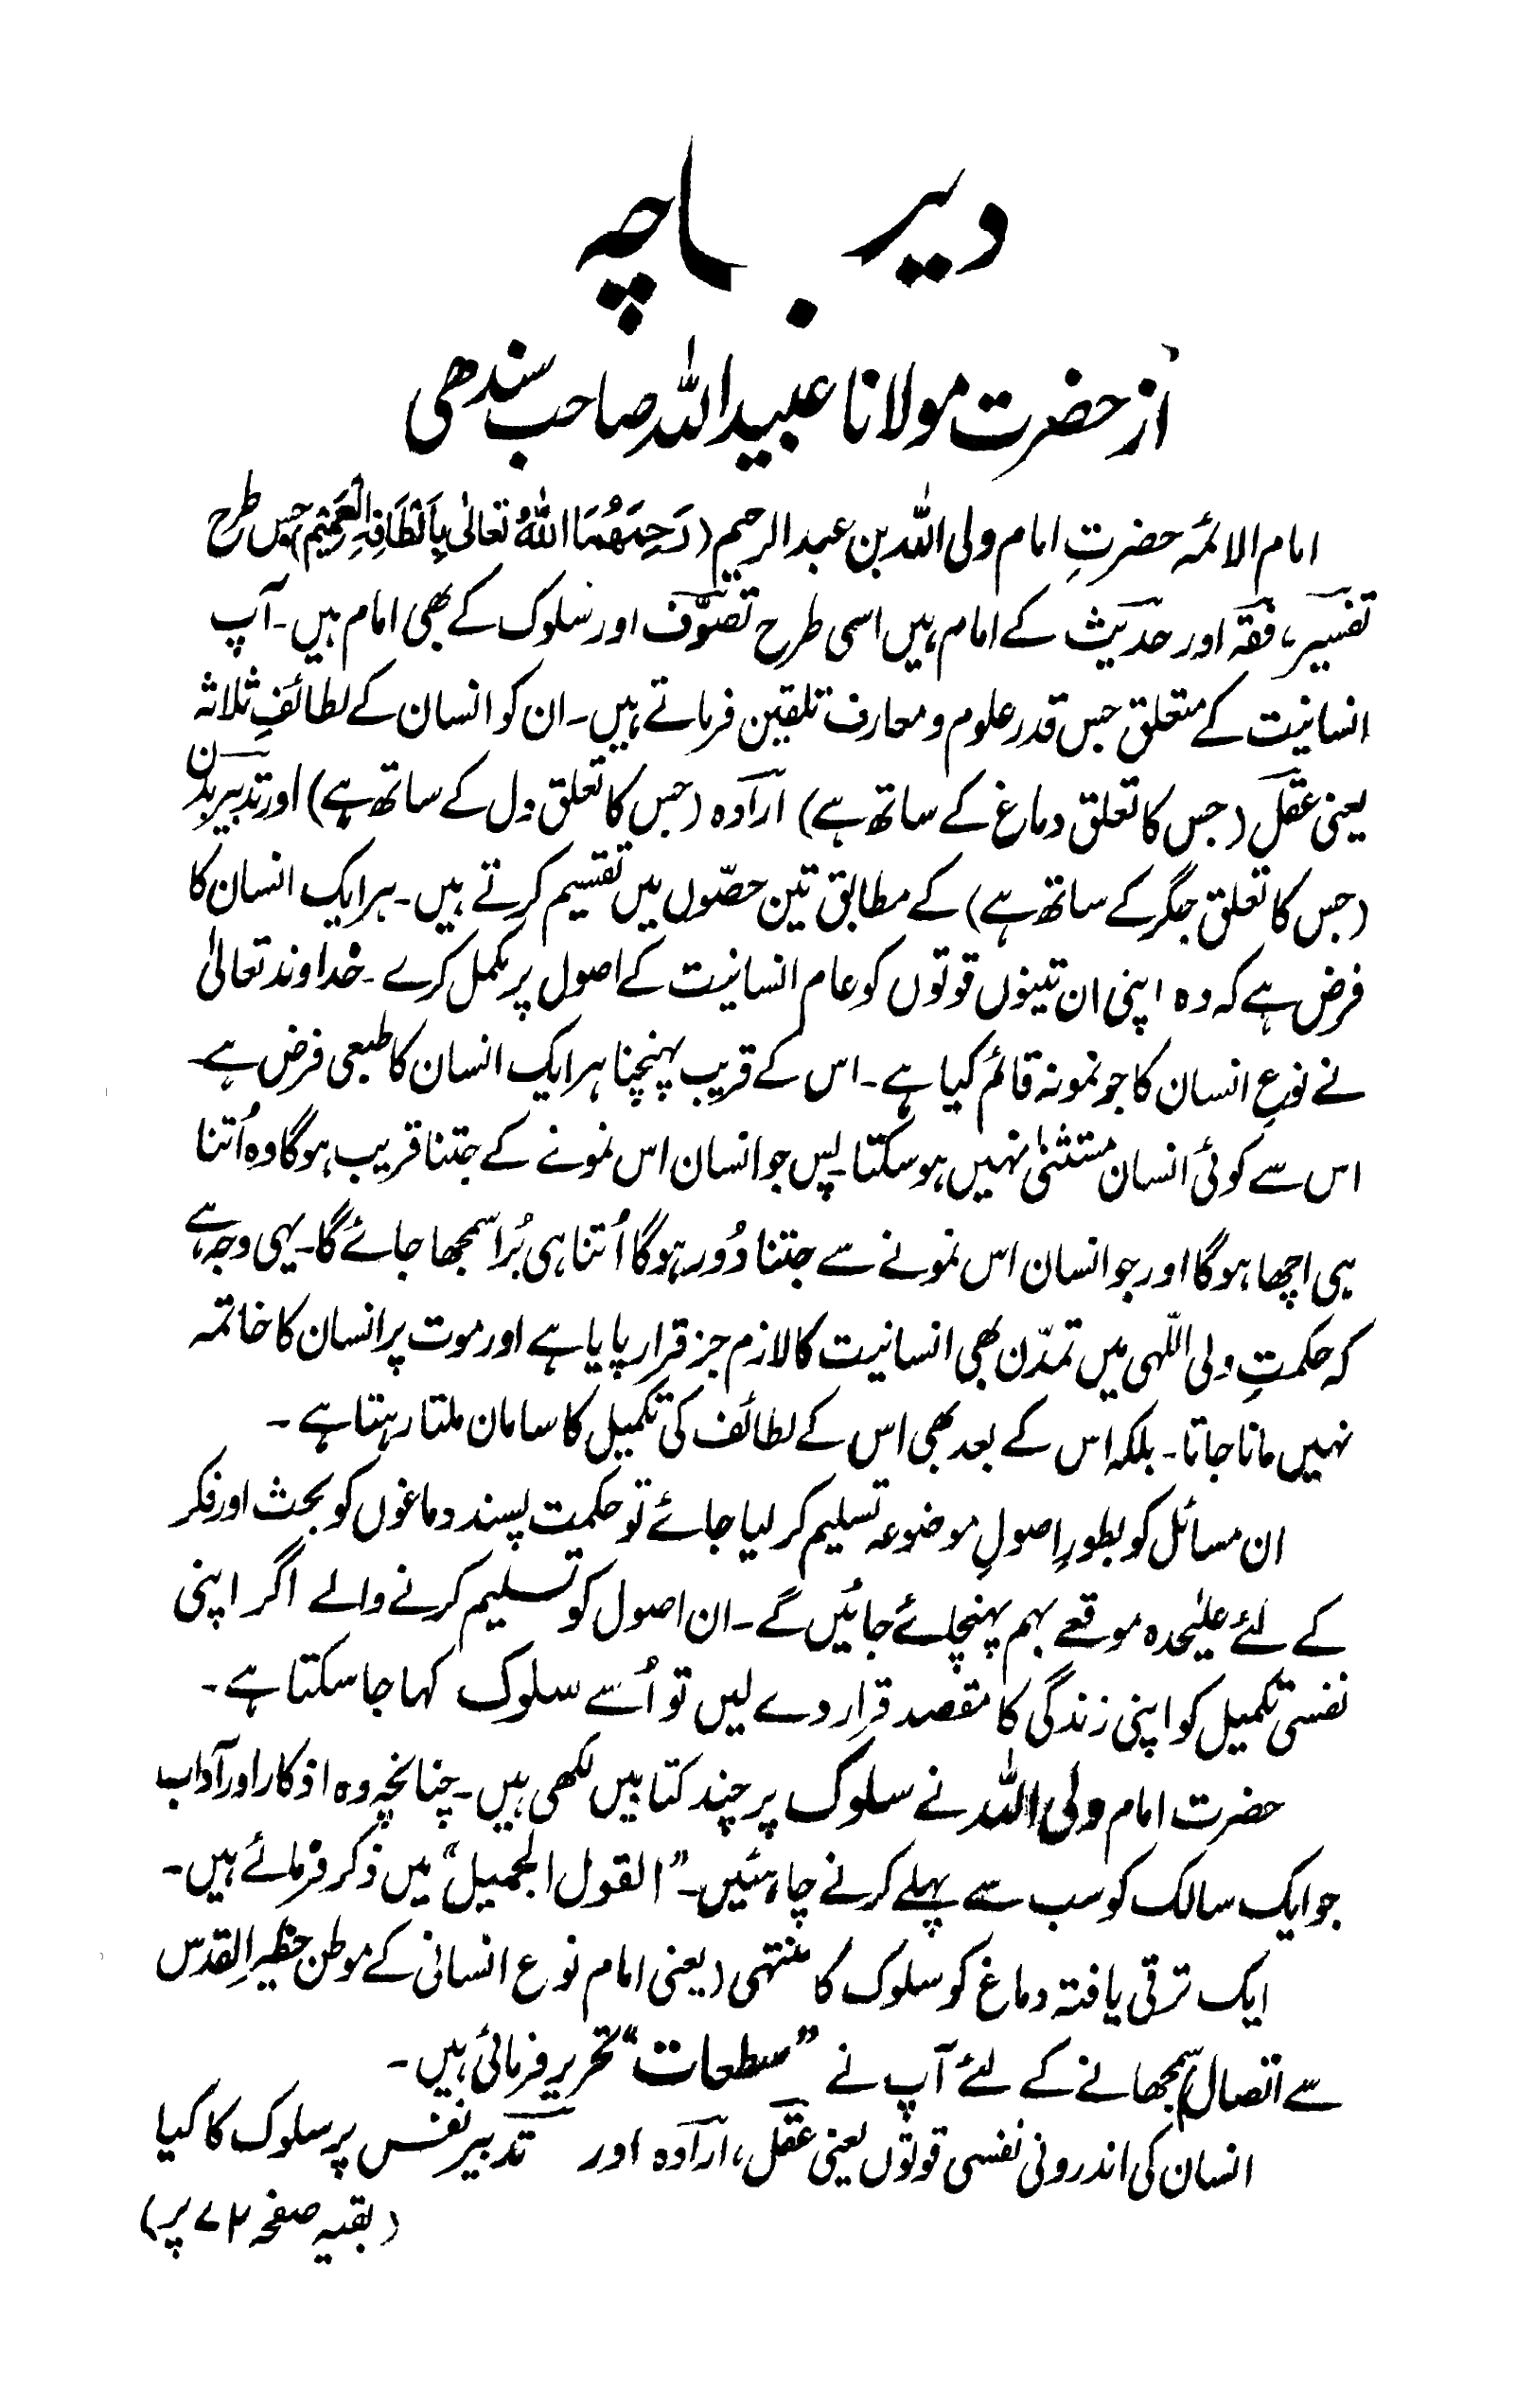 دیباچہ
از حضرت مولانا عبیداللہ صاحب سندھی
امام الائمہ حضرتِ امام ولی اللہ بن عبدالرحیم (رَحِمَھُمَا اللہُ تعالیٰ بِاَلْطَافِہِ الْعَمِیْم) جس طرح
تفسیر، فقہ اور حدیث کے امام ہیں اسی طرح تصوّف اور سلوک کے بھی امام ہیں۔ آپ
انسانیت کے متعلق جس قدر علوم و معارف تلقین فرماتے ہیں۔ ان کو انسان کے لطائفِ ثلاثہ
یعنی عقل (جس کا تعلق دماغ کے ساتھ ہے) ارادہ (جس کا تعلق دل کے ساتھ ہے) اور تدبیر بدن
(جس کا تعلق جگر کے ساتھ ہے) کے مطابق تین حصّوں میں تقسیم کرتے ہیں۔ ہر ایک انسان کا
فرض ہے کہ وہ اپنی ان تینوں قوتوں کو عام انسانیت کے اصول پر مکمل کرے۔ خداوند تعالیٰ
نے نوعِ انسان کا جو نمونہ قائم کیا ہے۔ اس کے قریب پہنچنا ہر ایک انسان کا طبعی فرض ہے۔
اس سے کوئی انسان مستثنیٰ نہیں ہو سکتا۔ پس جو انسان اس نمونے کے جتنا قریب ہوگا وہ اُتنا
ہی اچھا ہوگا اور جو انسان اس نمونے سے جتنا دُور ہوگا اُتنا ہی بُرا سمجھا جائے گا۔ یہی وجہ ہے
کہ حکمتِ ولی اللّٰہی میں تمدّن بھی انسانیت کا لازم جز قرار پایا ہے اور موت پر انسان کا خاتمہ
نہیں مانا جاتا۔ بلکہ اس کے بعد بھی اس کے لطائف کی تکمیل کا سامان ملتا رہتا ہے۔
ان مسائل کو بطورِ اصولِ موضوعہ تسلیم کر لیا جائے تو حکمت پسند دماغوں کو بحث اور فکر
کے لئے علیٰحدہ موقعے بہم پہنچائے جائیں گے۔ ان اصول کو تسلیم کرنے والے اگر اپنی
نفسی تکمیل کو اپنی زندگی کا مقصد قرار دے لیں تو اُسے سلوک کہا جا سکتا ہے۔
حضرت امام ولی اللہ نے سلوک پر چند کتابیں لکھی ہیں۔ چنانچہ وہ اذکار اور آداب
جو ایک سالک کو سب سے پہلے کرنے چاہئیں۔ ”القول الجمیل“ میں ذکر فرمائے ہیں۔
ایک ترقی یافتہ دماغ کو سلوک کا منتہی (یعنی امام نوع انسانی کے موطن حظیرالقدس
سے اتصال) سمجھانے کے لئے آپ نے ”سطعات“ تحریر فرمائی ہیں۔
انسان کی اندرونی نفسی قوتوں یعنی عقل، ارادہ اور تدبیر نفس پر سلوک کا کیا
(بقیہ صفحہ ۷۲ پر)